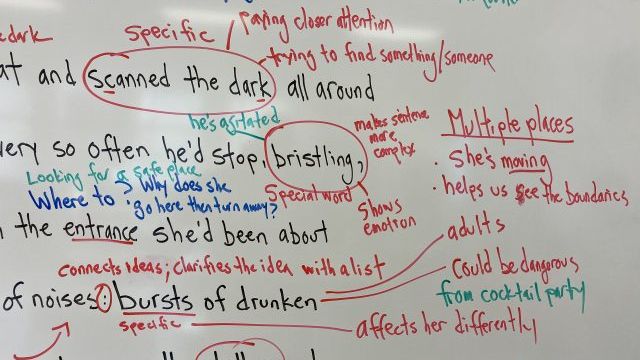 dark
Specific
paying closer attention
trying to find something/someone
at and scanned the dark all around
he's agitated
makes sentence more complex
Multiple places
very so often he'd stop, bristling,
She's moving
Looking for a safe place
Why does she
Special word
helps us see the boundaries
Where to
go here then turn away?
Shows emotion
the entrance she'd been about
adults
connects ideas; clarifies the idea with a list
Could be dangerous
of noises: bursts of drunken
from cocktail party
specific
affects her differently